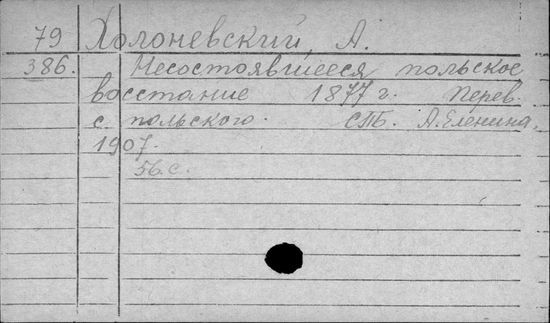 79 Холоневский, А.
386. Несостоявшееся польское
восстание 1877 г. Перев.
с польского. СПБ. А. Еленина,
1907.
56 с.